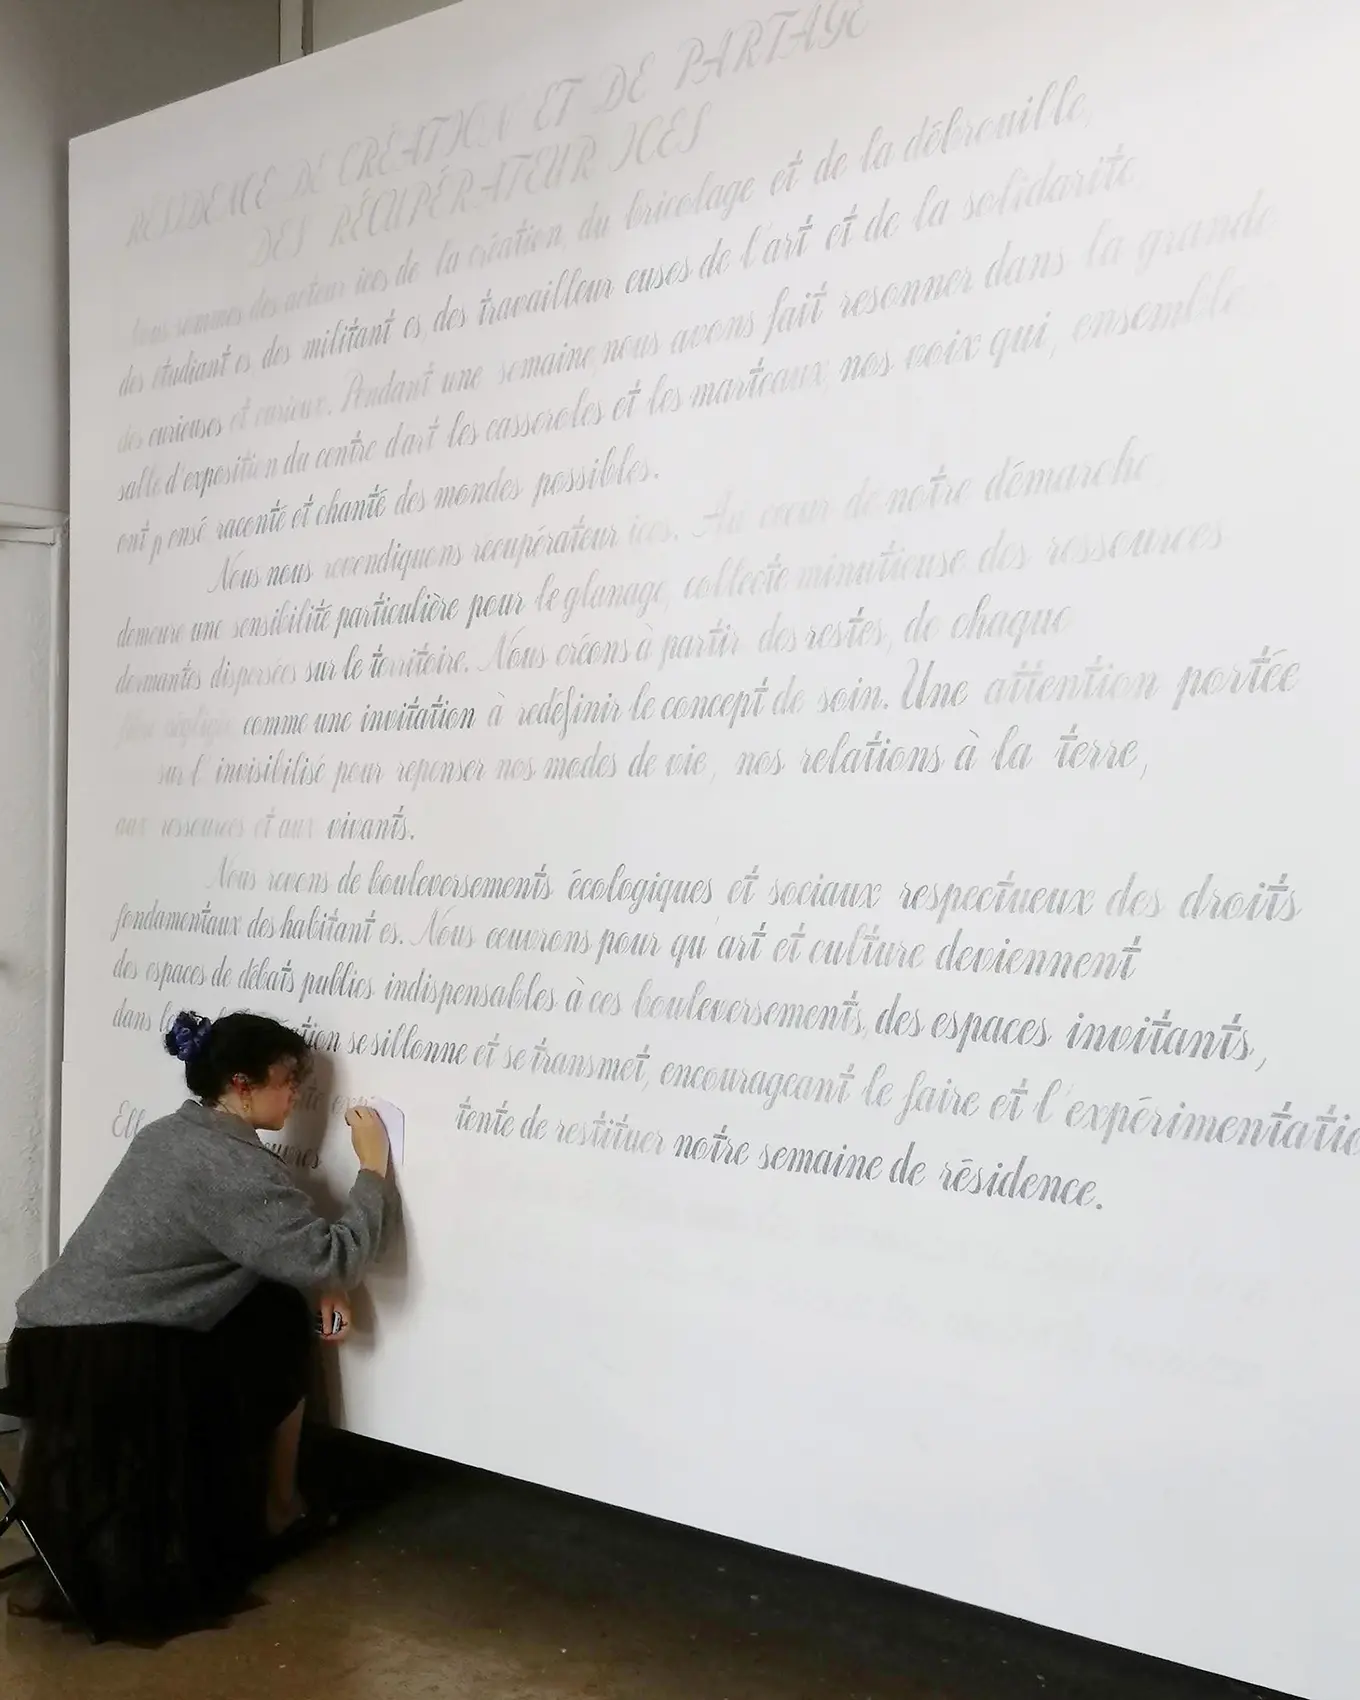 RÉSIDENCE DE CRÉATION ET DE PARTAGE
DES RÉCUPÉRATEUR ICES
Nous sommes des acteur ices de la création, du bricolage et de la débrouille,
des étudiant es, des militant es, des travailleur euses de l'art et de la solidarité,
des curieuses et curieux. Pendant une semaine, nous avons fait resonner dans la grande
salle d'exposition du centre d'art les casseroles et les marteaux, nos voix qui, ensemble,
ont pensé raconté et chanté des mondes possibles.
Nous nous revendiquons recupérateur ices. Au cœur de notre démarche,
demeure une sensibilité particulière pour le glanage, collecte minutieuse des ressources
dormantes dispersées sur le territoire. Nous créons à partir des restes, de chaque
comme une invitation à redéfinir le concept de soin. Une attention portée
sur l'invisibilisé pour repenser nos modes de vie, nos relations à la terre,
aux ressources et aux vivants.
Nous revons de bouleversements écologiques et sociaux respectueux des droits
fondamentaux des habitant es. Nous œuvrons pour qu'art et culture deviennent
des espaces de débats publics indispensables à ces bouleversements, des espaces invitants,
dans se sillonne et se transmet, encourageant le faire et l'expérimentatio
tente de restituer notre semaine de résidence.